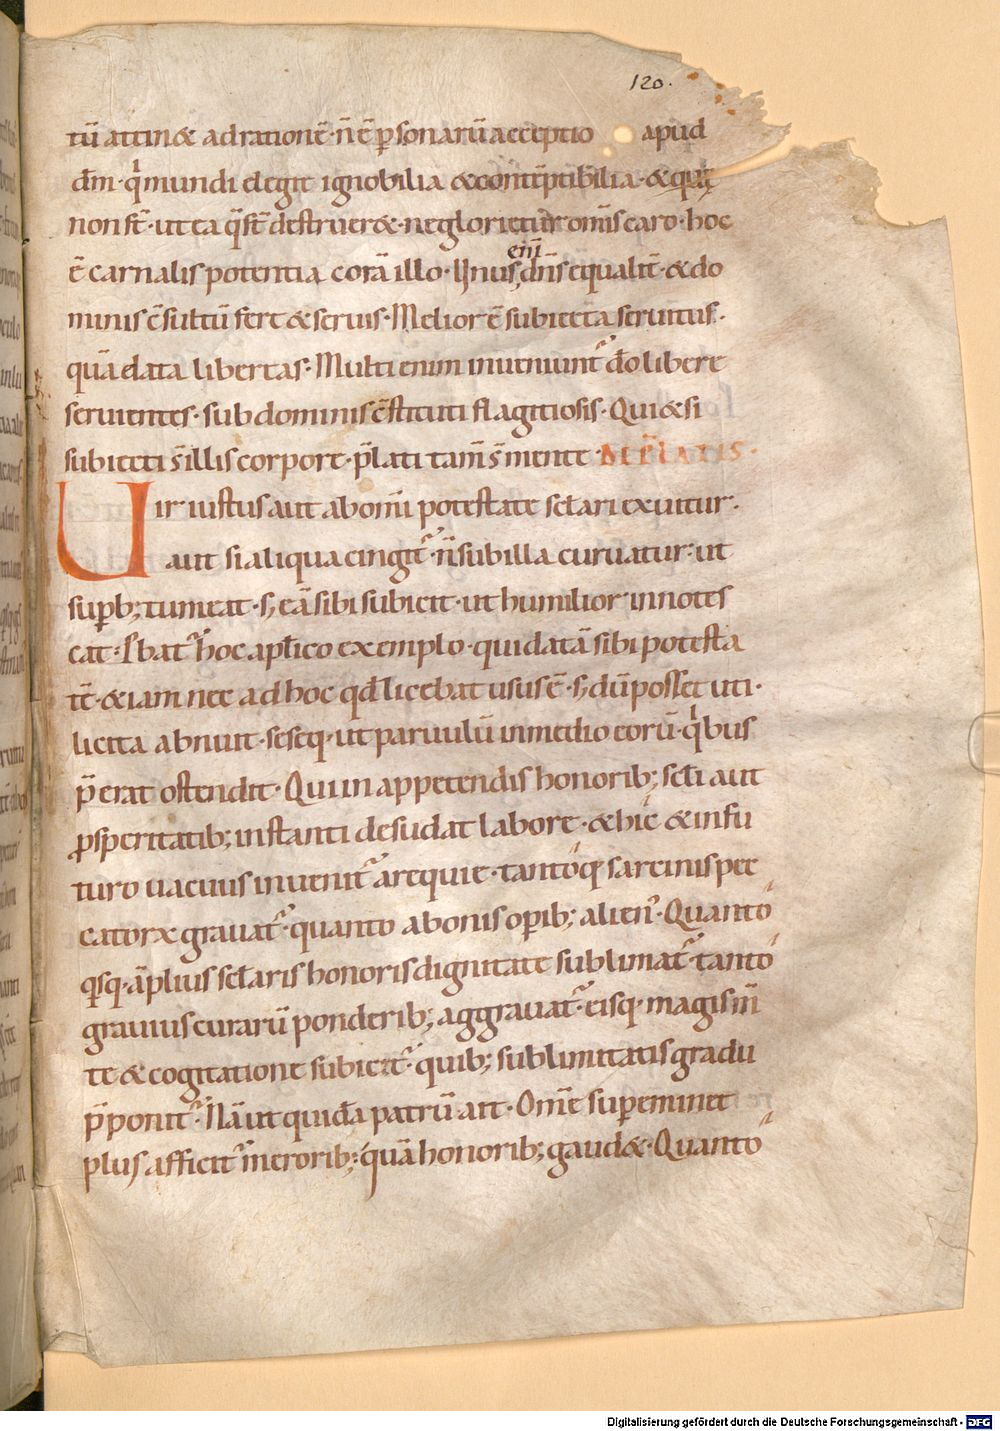 120.
tū attin& ad rationē· n̄ ē p̲sonarū acceptio apud
dm̄· q̇ mundi elegit ignobilia & cōtēptibilia· & quę
non st̄· ut ea q̄ st̄ destruer&· ne glorietur om̄is caro· hoc
ē carnalis potentia corā illo· Unus, enī dn̄s equalit̄· & do
minis c̄sultū fert & seruis· Melior ē subiecta seruitus·
quā elata libertas· Multi enim inueniunt᷑ dō libere
seruientes· sub dominis c̄stituti flagitiosis· Qui & si
subiecti s̄ illis corpore· p̄lati tam̄ s̄ mente· DE P̄LATIS·
Uir iustus aut ab om̄i potestate sc̄lari exuitur·
aut si aliqua cingit᷑· n̄ sub illa curuatur· ut
sup̲b; tumeat· s; eā sibi subicit· ut humilior innotes
cat· P̄bat᷑ hoc aplīco exemplo· qui datā sibi potesta
tē· & iam nec ad hoc qd̄ licebat usus ē· s; dū posset uti·
licita abnuit· seseq· ut paruulū in medio eorū· q̇bus
p̄erat ostendit· Qui in appetendis honorib; sc̄li aut
ꝓsperitatib; instanti desudat labore· & hic & in fu
turo uacuus inuenit᷑ a requie· tantoq; sarcinis pec
catorꝝ grauat᷑· quanto a bonis op̲ib; alien᷒· Quanto
qsq· āplius sc̄laris honoris dignitate sublimat᷑· tanto
grauius curarū ponderib; aggrauat᷑· eisq· magis m̄
te & cogitatione subicit᷑· quib; sublimitatis gradu
p̄ponit᷑· Nā ut quidā patrū ait· Om̄e sup̲eminet
plus afficit᷑ meroribꝫ· quā honorib; gaud&· Quanto
Digitalisierung gefördert durch die Deutsche Forschungsgemeinschaft - DFG